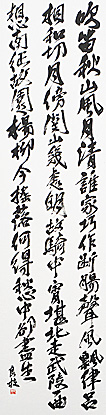 吹笛秋山風月清誰家巧作断腸聲風飄律呂
相和切月傍関山幾處明胡騎中宵堪北走武陵一曲
想南征故園楊柳今揺落何得愁中却盡生